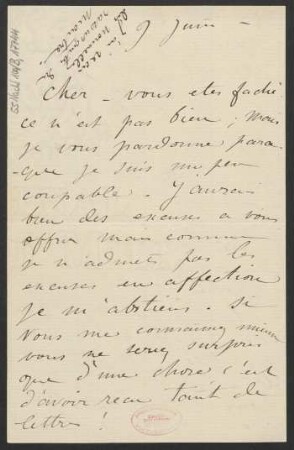 9 Juin
Cher – vous etes faché
ce n'est pas bien ; mais
je vous pardonne parce
-que je suis un peu
coupable. J'aurais
bien des excuses a vous
offrir mais comme
je n'admets pas les
excuses en affection
je m'abstiens. Si
vous me connaissiez mieux
vous ne seriez surpris
que d'une chose c'est
d'avoir reçu tant de
lettre !